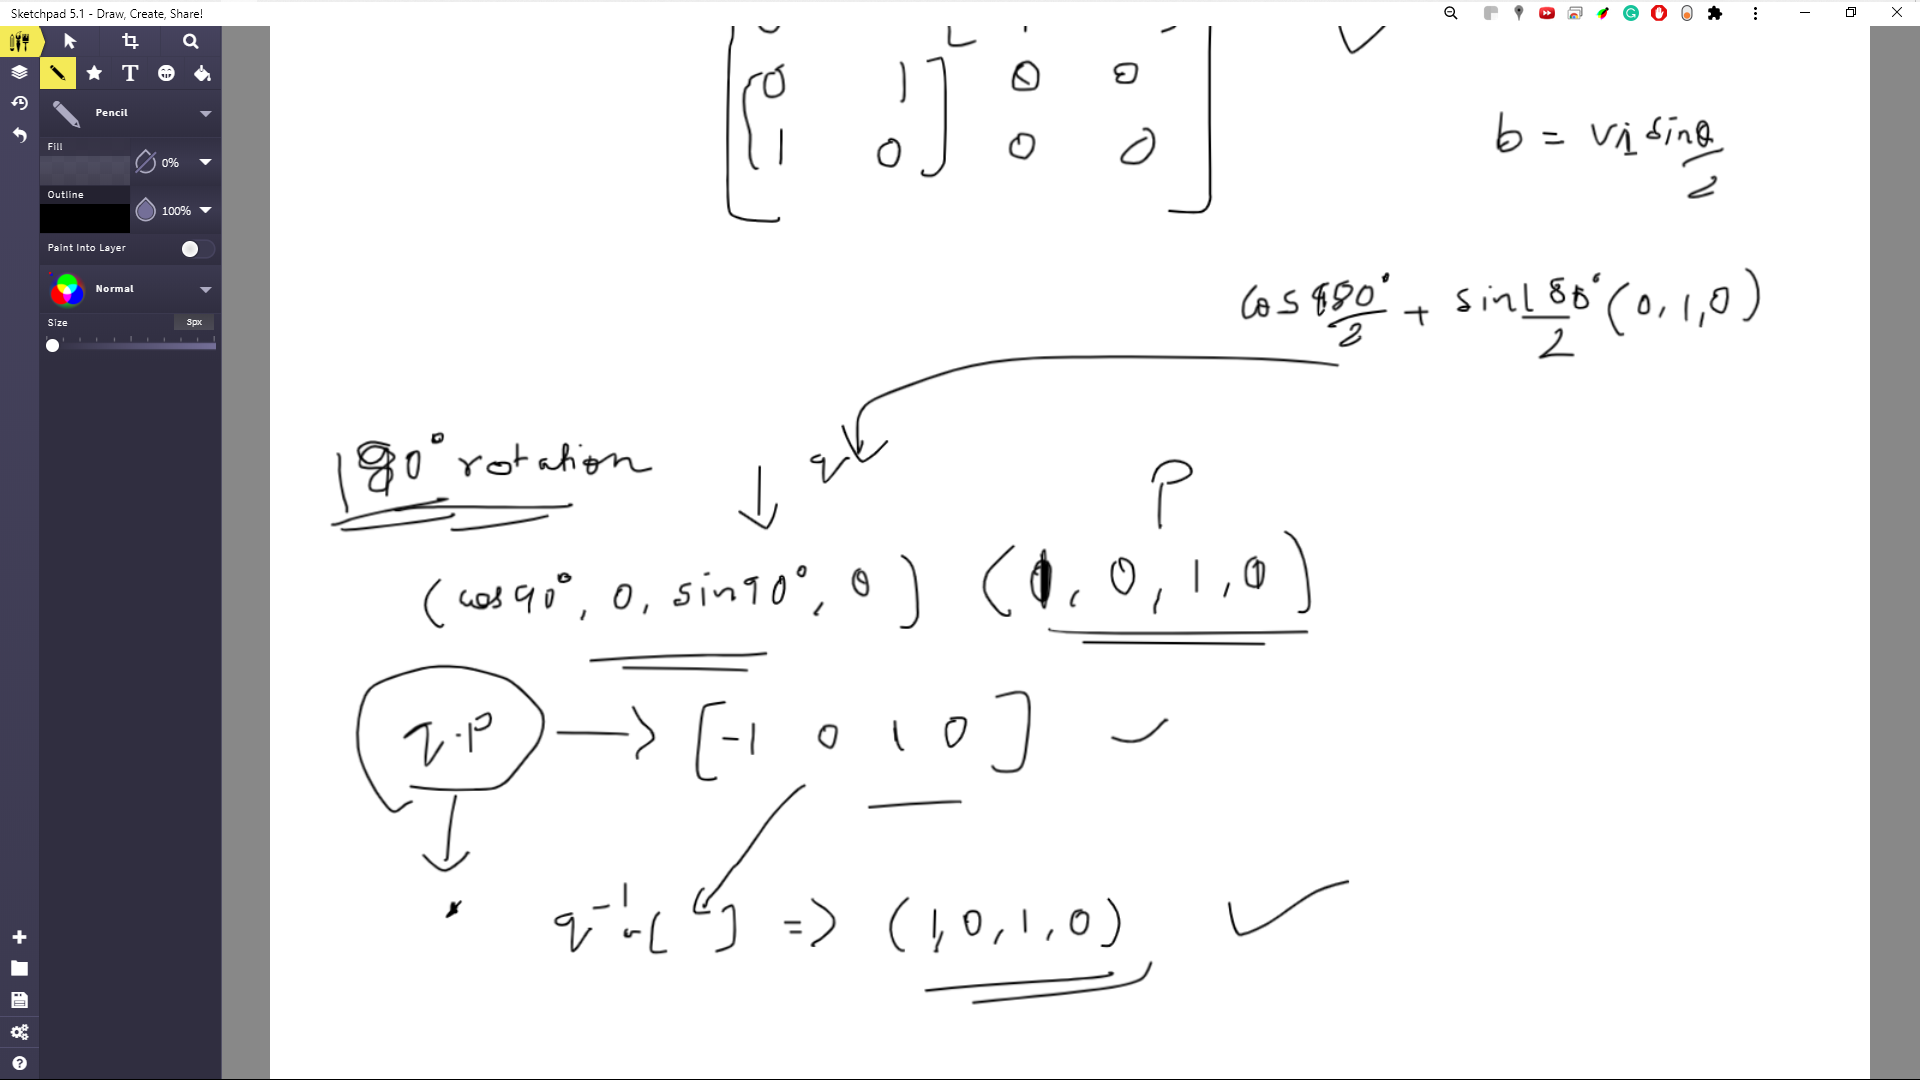 Sketchpad 5.1 - Draw, Create, Share!
Pencil
Fill
0%
Outline
100%
Paint Into Layer
Normal
Size
3px
0 1 0 0
1 0 0 0
b = vi sin θ/2
cos 180°/2 + sin 180°/2 (0, 1, 0)
180° rotation
q
P
(cos 90°, 0, sin 90°, 0) (0, 0, 1, 0)
q·P → [-1 0 1 0]
q⁻¹·[ ] => (1, 0, 1, 0)